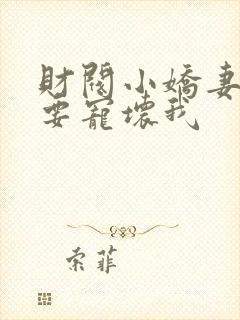 財閥小嬌妻
要寵壞我
索菲